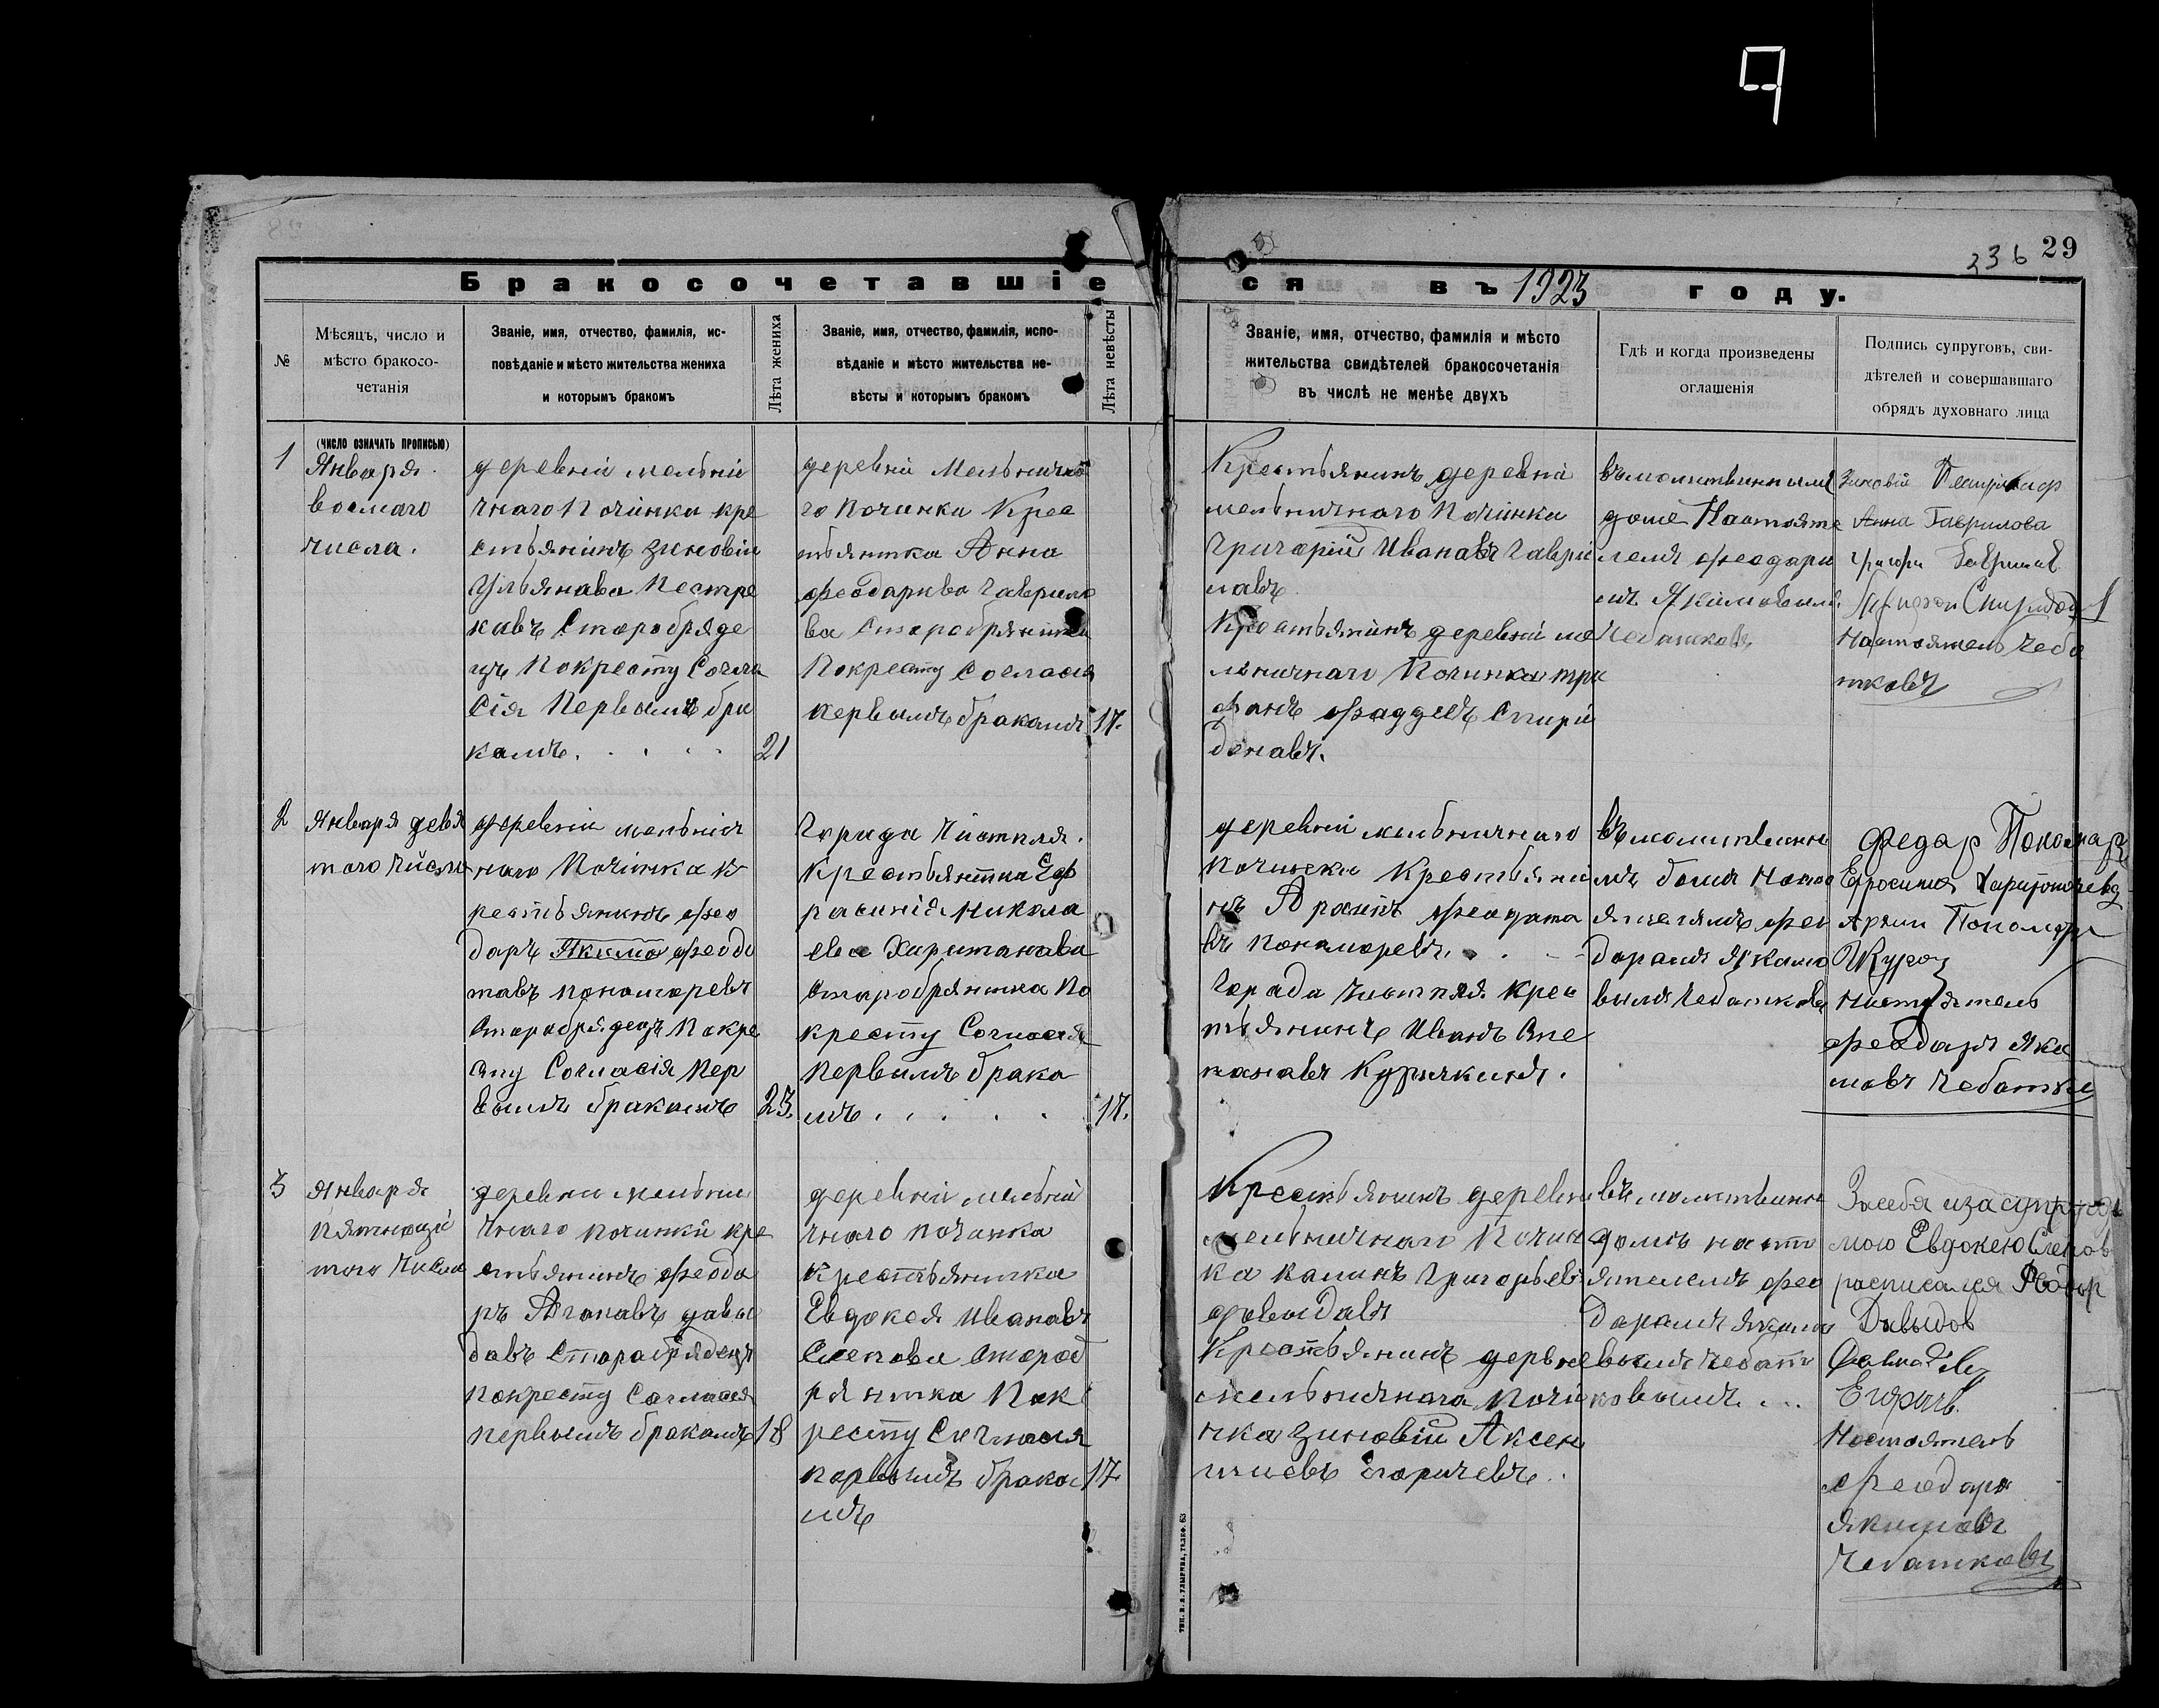 9
236 29
Бракосочетавшіеся въ 1923 году.
№
Мѣсяцъ, число и
мѣсто бракосо-
четанія
Званіе, имя, отчество, фамилія, ис-
повѣданіе и мѣсто жительства жениха
и которымъ бракомъ
Лѣта жениха
Званіе, имя, отчество, фамилія, испо-
вѣданіе и мѣсто жительства не-
вѣсты и которымъ бракомъ
Лѣта невѣсты
Званіе, имя, отчество, фамилія и мѣсто
жительства свидѣтелей бракосочетанія
въ числѣ не менѣе двухъ
Гдѣ и когда произведены
оглашенія
Подпись супруговъ, сви-
дѣтелей и совершавшаго
обрядъ духовнаго лица
(число означать прописью)
1
Января
восмаго
числа.
деревніи мельни
чнаго Починка кре
стьянинъ Зиновіи
Ульянава Пестре
кавъ Старобряде
цъ Покресту Согла
сія Первымъ бра
камъ.
21
деревніи Мельнична
го Починка Крес
тьянтка Анна
Феодарива Гаврило
ва Старобрянтка
Покресту Согласия
первымъ бракамъ
17.
Крестьянинъ деревни
мельничнаго Починка
Григорій Иванавъ Гаври
лавъ.
Крестьянинъ деревній ме
льничнаго Починка три
фанъ Фаддевъ Спири
донавъ.
въ молитвинными
доме Настояте
лемъ Феодари
мъ Якимовымъ
Чебатковъ
Зиновій
Анна Гаврилова
Григори Гаврилов
Настоятель Чеба
тковъ
2
Января девя
таго Число
деревніи мельнич
наго Починка К
рестьянинъ Фео
даръ Якима Феодо
тавъ Пономаревъ
Старобрядецъ Покре
сту Согласія Пер
вымъ бракамъ
23.
Горада Чистпля.
Крестьянтка Еф
расинія Никола
ева Хаританава
Старобрянтка По
кресту Согласия
Первымъ брака
мъ
17.
деревній мельничнаго
Починка Крестьяни
нъ Архипъ Феодата
въ Понамаревъ.
Горада Чистпля Крес
тьянинъ Иванъ Сте
панавъ Курочкинъ.
въ молитвинно
мъ доми Насто
ятелямъ Фео
дарамъ Якимо
вымъ Чебаткова
Федар Пономар
Ефросиния Харитонова
Архип Пономар
Куроч
Настоятель
Феодаръ Яки
мовъ Чебатко
3
Января
Пятнацы
таго Числа
деревни мельни
чнаго починки кре
стьянинъ Феода
ръ Аганавъ давы
давъ Старабрядецъ
покресту Согласея
первымъ бракамъ
18
деревніи мельни
чнаго починка
крестьянтка
Евдокея Ивановъ
Слепова Староб
рянтка Пок
ресту Согласия
первымъ брака
мъ
17.
Крестьянинъ деревни
мельничнаго Почин
ка Калинъ Григорьевъ
довыдавъ
Крестьянинъ дервне
мельничнаго Почи
нка Зиновій Аксен
тиевъ Егоричевъ.
въ молитвинно
домъ насто
ятелемъ Фео
дарамъ Якимо
вымъ Чебат
ковымъ...
За себя и за супруг
мою Евдокею Слепов
расписался Феодор
Давыдов
Егорич.
Настоятель
Феодаръ
Якимовъ
Чебатковъ